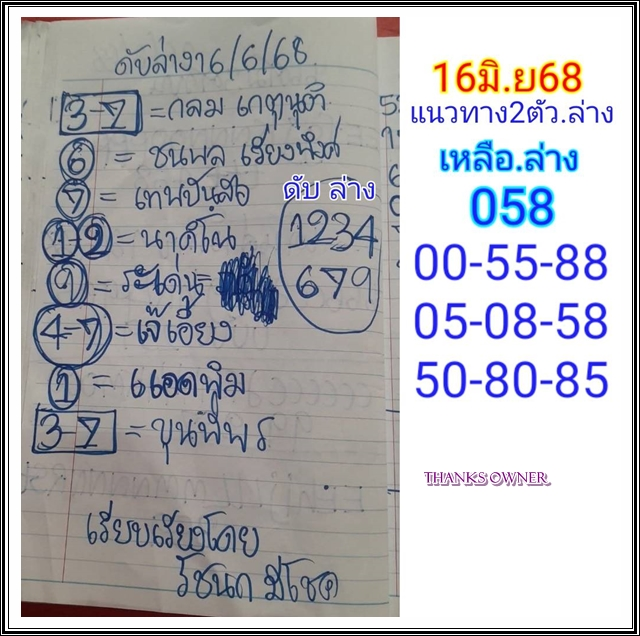 ดับล่าง16/6/68
3-7 = กลม เกตุนุติ
6 = ชนพล เรียงพังศ์
7 = เทพบันลือ
1-9 = นาคโน
9 = ระเด่น =
4-7 = เจ๊เอียง
1 = แอดพิม
3-7 = ขุนพีพร
เรียบเรียงโดย
รัชนก มีโชค
ดับ ล่าง
1234
679
16มิ.ย68
แนวทาง2ตัว.ล่าง
เหลือ.ล่าง
058
00-55-88
05-08-58
50-80-85
THANKS OWNER